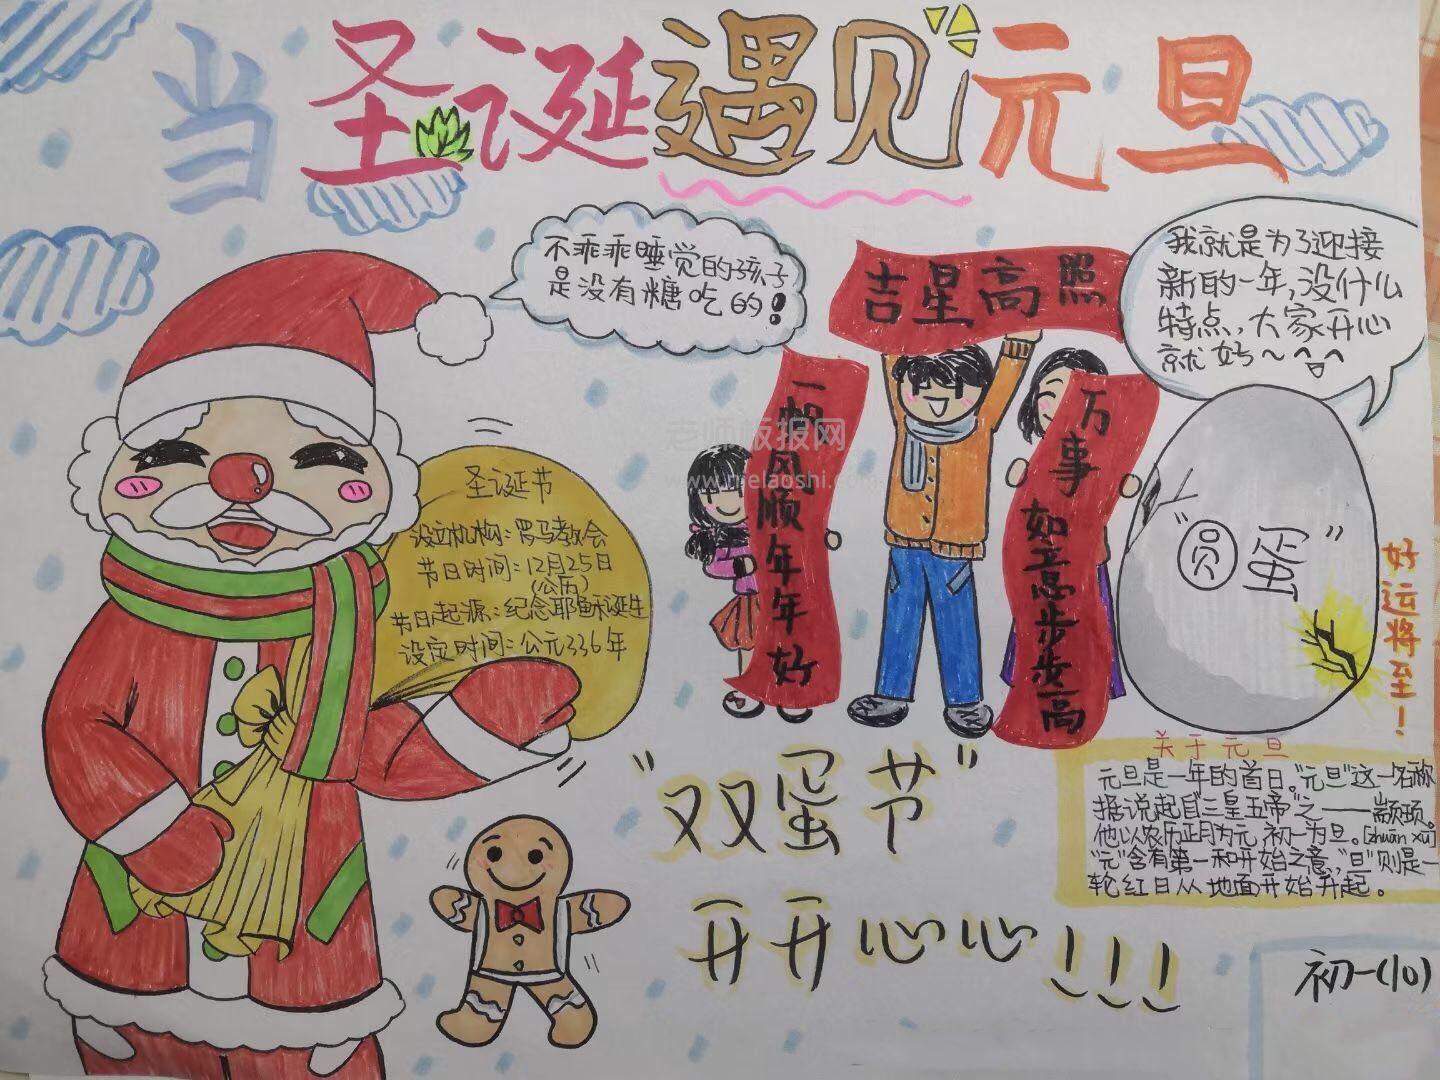 当圣诞遇见元旦
不乖乖睡觉的孩子
是没有糖吃的!
吉星高照
一帆风顺年年好
万事如意步步高
我就是为了迎接
新的一年,没什么
特点,大家开心
就好~^▽^
"圆蛋"
好运将至!
圣诞节
设立机构:罗马教会
节日时间:12月25日
(公历)
节日起源:纪念耶稣诞生
设定时间:公元336年
老师板报网
www.melaoshi.com
"双蛋节"
开开心心!!!
关于元旦
元旦是一年的首日。"元旦"这一名称
据说起自"三皇五帝"之一——颛顼。
他以农历正月为元,初一为旦。[zhuān xū]
"元"含有第一和开始之意,"旦"则是一
轮红日从地面开始升起。
初一(10)